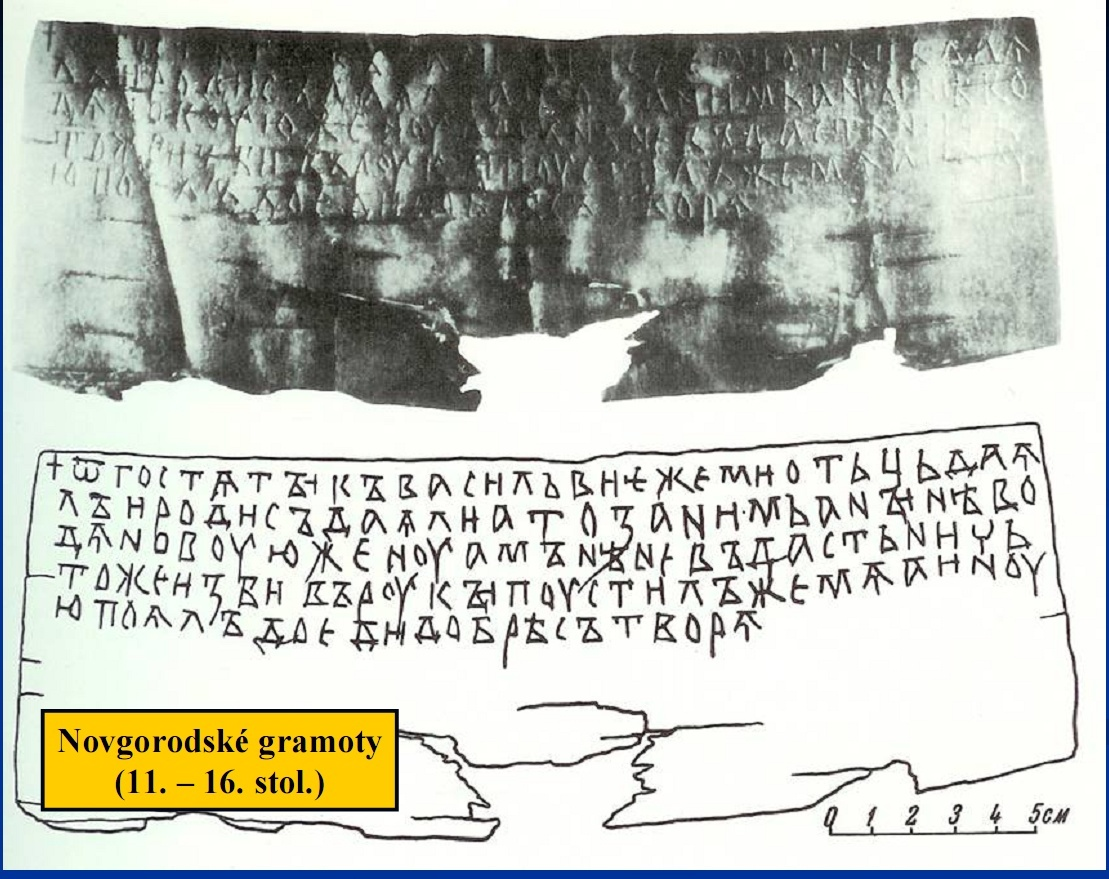 +ѾГОСТѦТЪІКЪВАСИЛЬВИѤЖЕМИОТЬЦЬДАѦ
ЛЪИРОДИСЪДАѦЛИАТОЗАНИМЬАНЪІНѢВО
ДѦНОВОУЮЖЕНОУАМЪНѢНЕВЪДАСТЬНИЧЬ
ТОЖЕИЗБИВЪРОУКЪІПОУСТИЛЪЖЕМѦАИНОУ
ЮПОѦЛЪДОЕДИДОБРѢСЪТВОРѦ
Novgorodské gramoty
(11. – 16. stol.)
0 1 2 3 4 5см